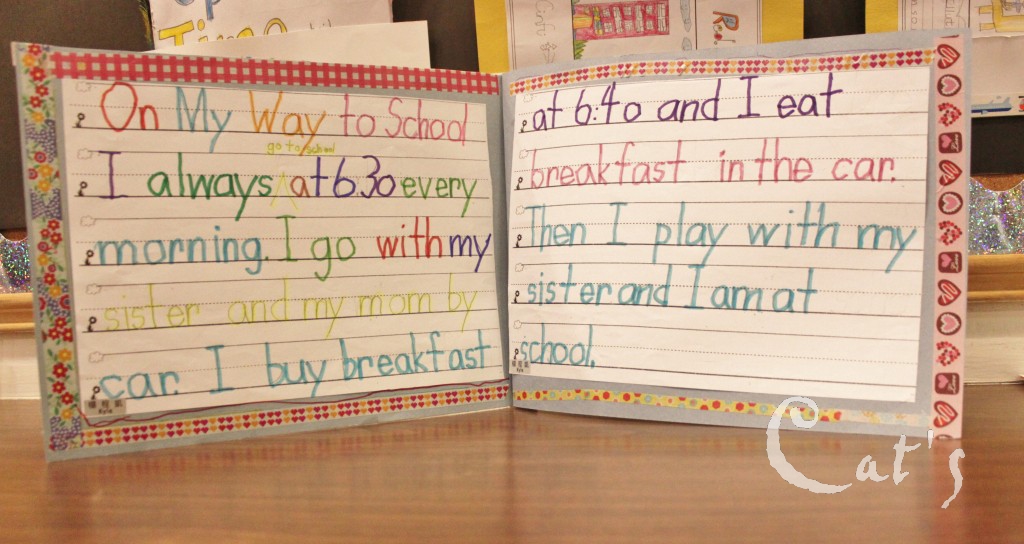 On My Way to School
go to school
I always at 6:30 every
morning. I go with my
sister and my mom by
car. I buy breakfast
Kyle
at 6:40 and I eat
breakfast in the car.
Then I play with my
sister and I am at
school.
Kyle
Cat's